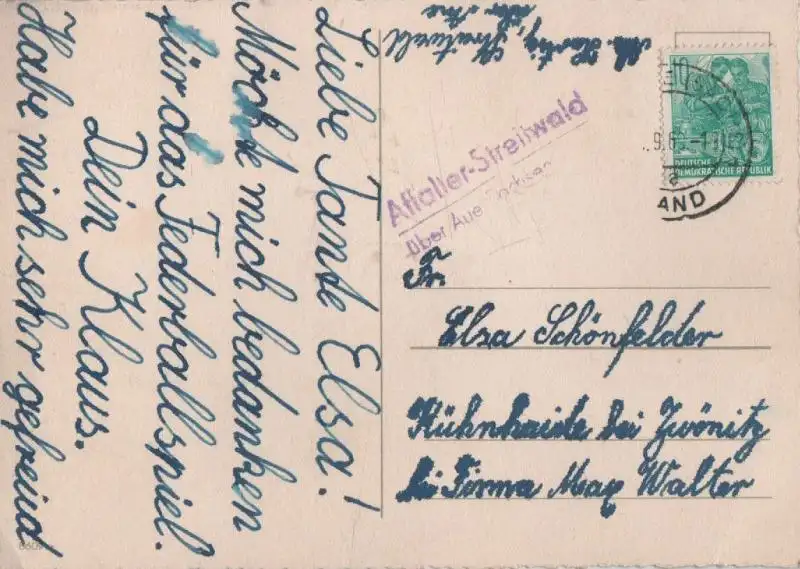 Liebe Tante Elsa!
Möchte mich bedanken
für das Federballspiel.
Dein Klaus.
Habe mich sehr gefreud
Streitwald
über Aue
Affalter-Streitwald
über Aue Sachsen
DEUTSCHE
DEMOKRATISCHE REPUBLIK
5
LAND
Fr.
Elsa Schönfelder
Kühnhaide bei Zwönitz
bei Firma Max Walter